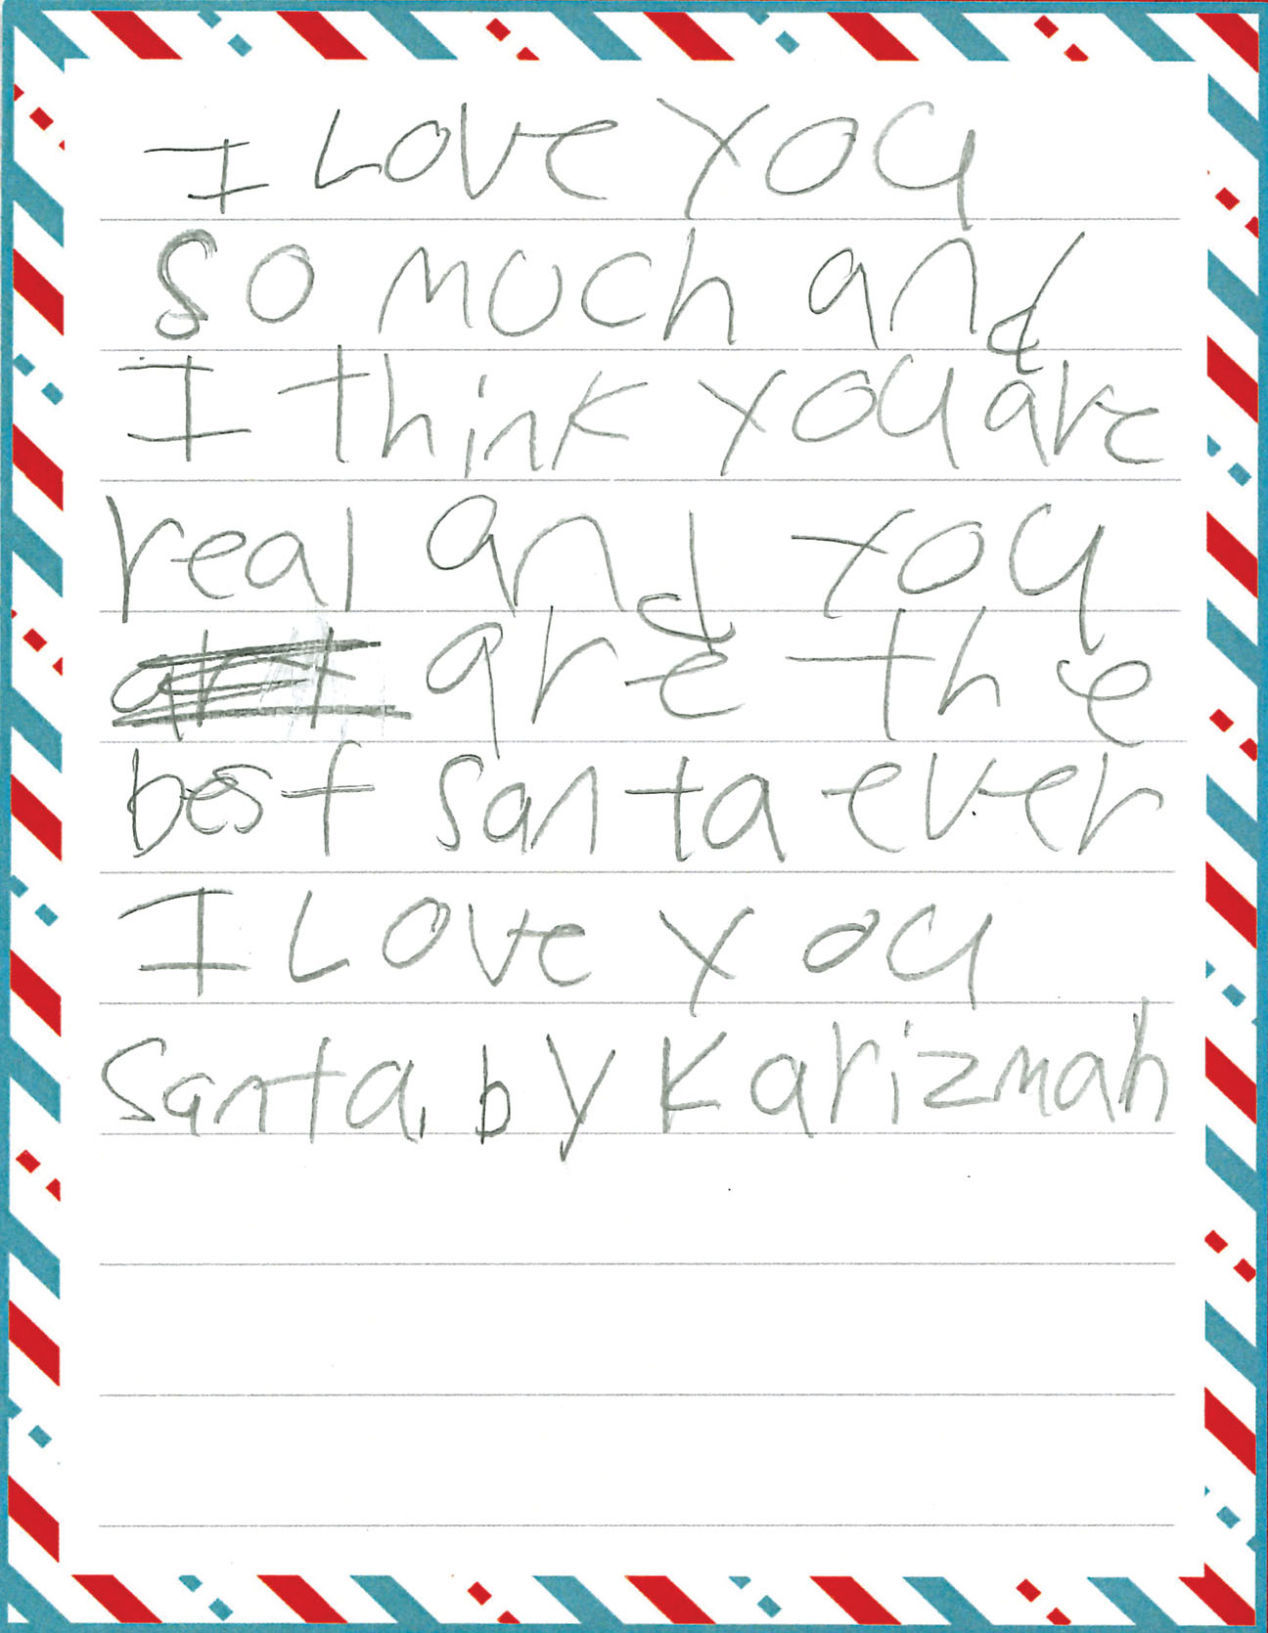 I Love You
So much and
I think you are
real and you
are the
best Santa ever
I Love you
Santa. by Karizmah